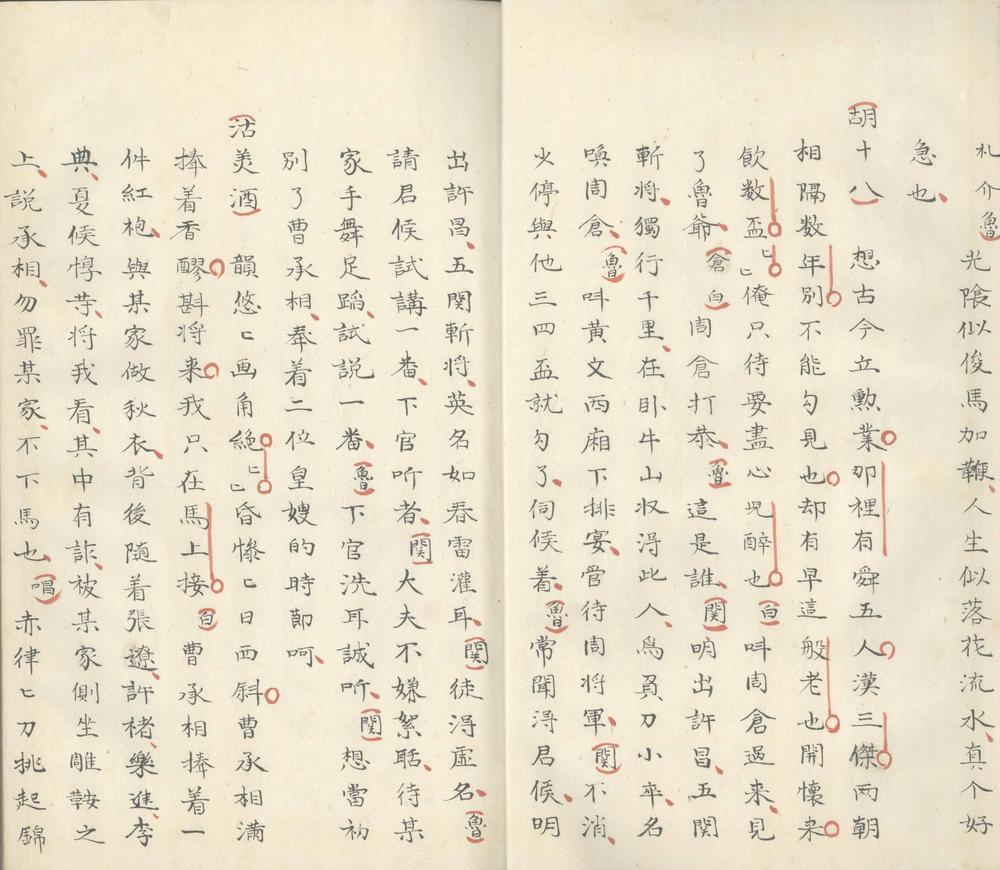 札介魯光陰似俊馬加鞭人生似落花流水真个好
急也
胡十八想古今立勲業那裡有舜五人漢三傑両朝
相隔数年別不能勾見也却有早這般老也開懐来
飲数盃ヒヒ俺只待要盡心児醉也白呌周倉過来見
了魯爺倉白周倉打恭魯這是誰関明出許昌五関
斬将獨行千里在卧牛山収淂此人為負刀小卒名
喚周倉魯呌黄文西廂下排宴管待周将軍関不消
少停與他三四盃就勾了伺候着魯常聞淂君侯明
出許昌五関斬将英名如春雷灌耳関徒淂虚名魯
請君候試講一番下官听者関大夫不嫌絮聒待某
家手舞足蹈試説一番魯下官洗耳誠听関想當初
別了曹承相奉着二位皇嫂的時節呵
沽美酒韻悠ヒ画角絶ヒヒ昏惨ヒ日西斜曹承相満
捧着香醪斟将来我只在馬上接白曹承相捧着一
件紅袍與某家做秋衣背後随着張遼許褚樂進李
典夏候惇䒭将我看其中有詐被某家側坐雕鞍之
上説承相勿罪某家不下馬也唱赤律ヒ刀挑起錦